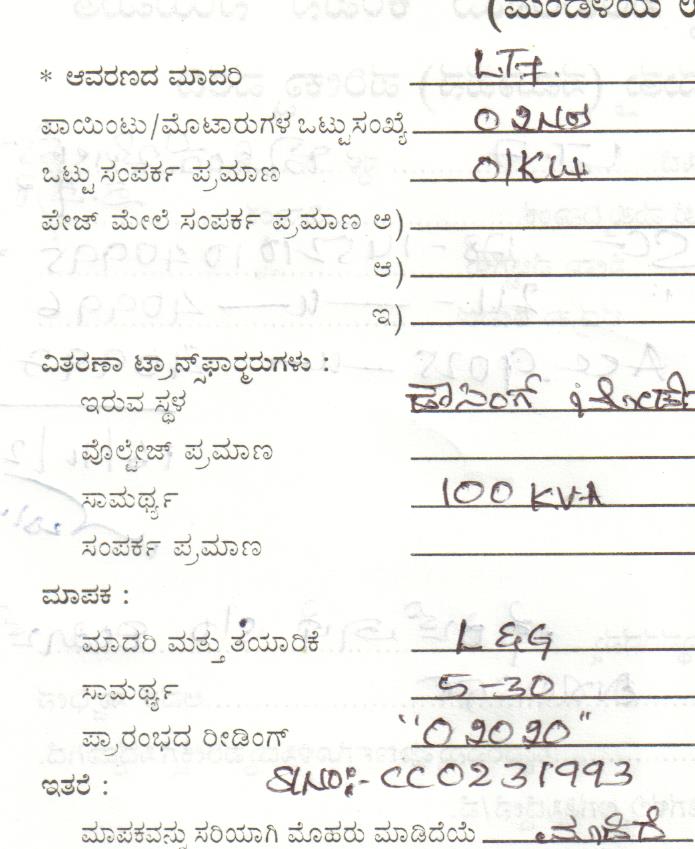 (ಮಂಡಳಿಯ
* ಆವರಣದ ಮಾದರಿ LT7.
ಪಾಯಿಂಟು/ಮೊಟಾರುಗಳ ಒಟ್ಟು ಸಂಖ್ಯೆ 02NO
ಒಟ್ಟು ಸಂಪರ್ಕ ಪ್ರಮಾಣ 01KW
ಪೇಜ್ ಮೇಲೆ ಸಂಪರ್ಕ ಪ್ರಮಾಣ ಅ)
ಆ)
ಇ)
ವಿತರಣಾ ಟ್ರಾನ್ಸ್‌ಫಾರ್‍ಮರುಗಳು :
ಇರುವ ಸ್ಥಳ ಹೌಸಿಂಗ್ ಬೋರ್ಡ್
ವೊಲ್ಟೇಜ್ ಪ್ರಮಾಣ
ಸಾಮರ್ಥ್ಯ 100 KVA
ಸಂಪರ್ಕ ಪ್ರಮಾಣ
ಮಾಪಕ :
ಮಾದರಿ ಮತ್ತು ತಯಾರಿಕೆ L&G
ಸಾಮರ್ಥ್ಯ 5-30
ಪ್ರಾರಂಭದ ರೀಡಿಂಗ್ "02020"
ಇತರೆ : SLNO:- CC0231993
ಮಾಪಕವನ್ನು ಸರಿಯಾಗಿ ಮೊಹರು ಮಾಡಿದೆಯೆ ಮಾಡಿದೆ